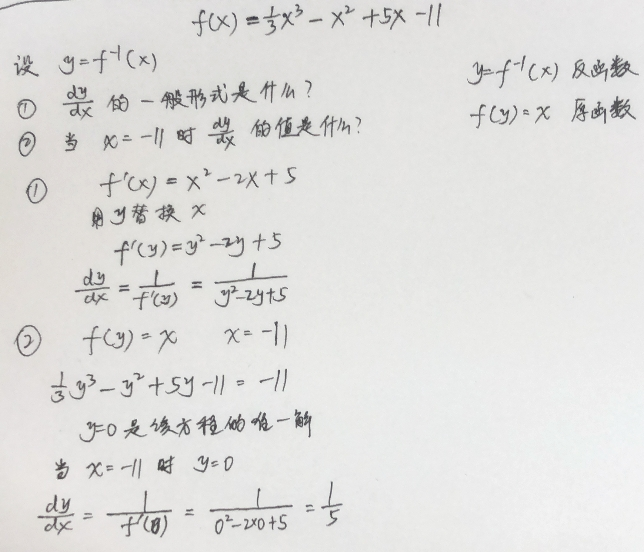 f(x) = 1/3 x³ - x² + 5x - 11
设 y = f⁻¹(x)
y = f⁻¹(x) 反函数
① dy/dx 的一般形式是什么?
f(y) = x 原函数
② 当 x = -11 时 dy/dx 的值是什么?
① f'(x) = x² - 2x + 5
用y替换 x
f'(y) = y² - 2y + 5
dy/dx = 1/f'(y) = 1/(y² - 2y + 5)
② f(y) = x x = -11
1/3 y³ - y² + 5y - 11 = -11
y=0 是该方程的唯一解
当 x = -11 时 y = 0
dy/dx = 1/f'(0) = 1/(0² - 2×0 + 5) = 1/5